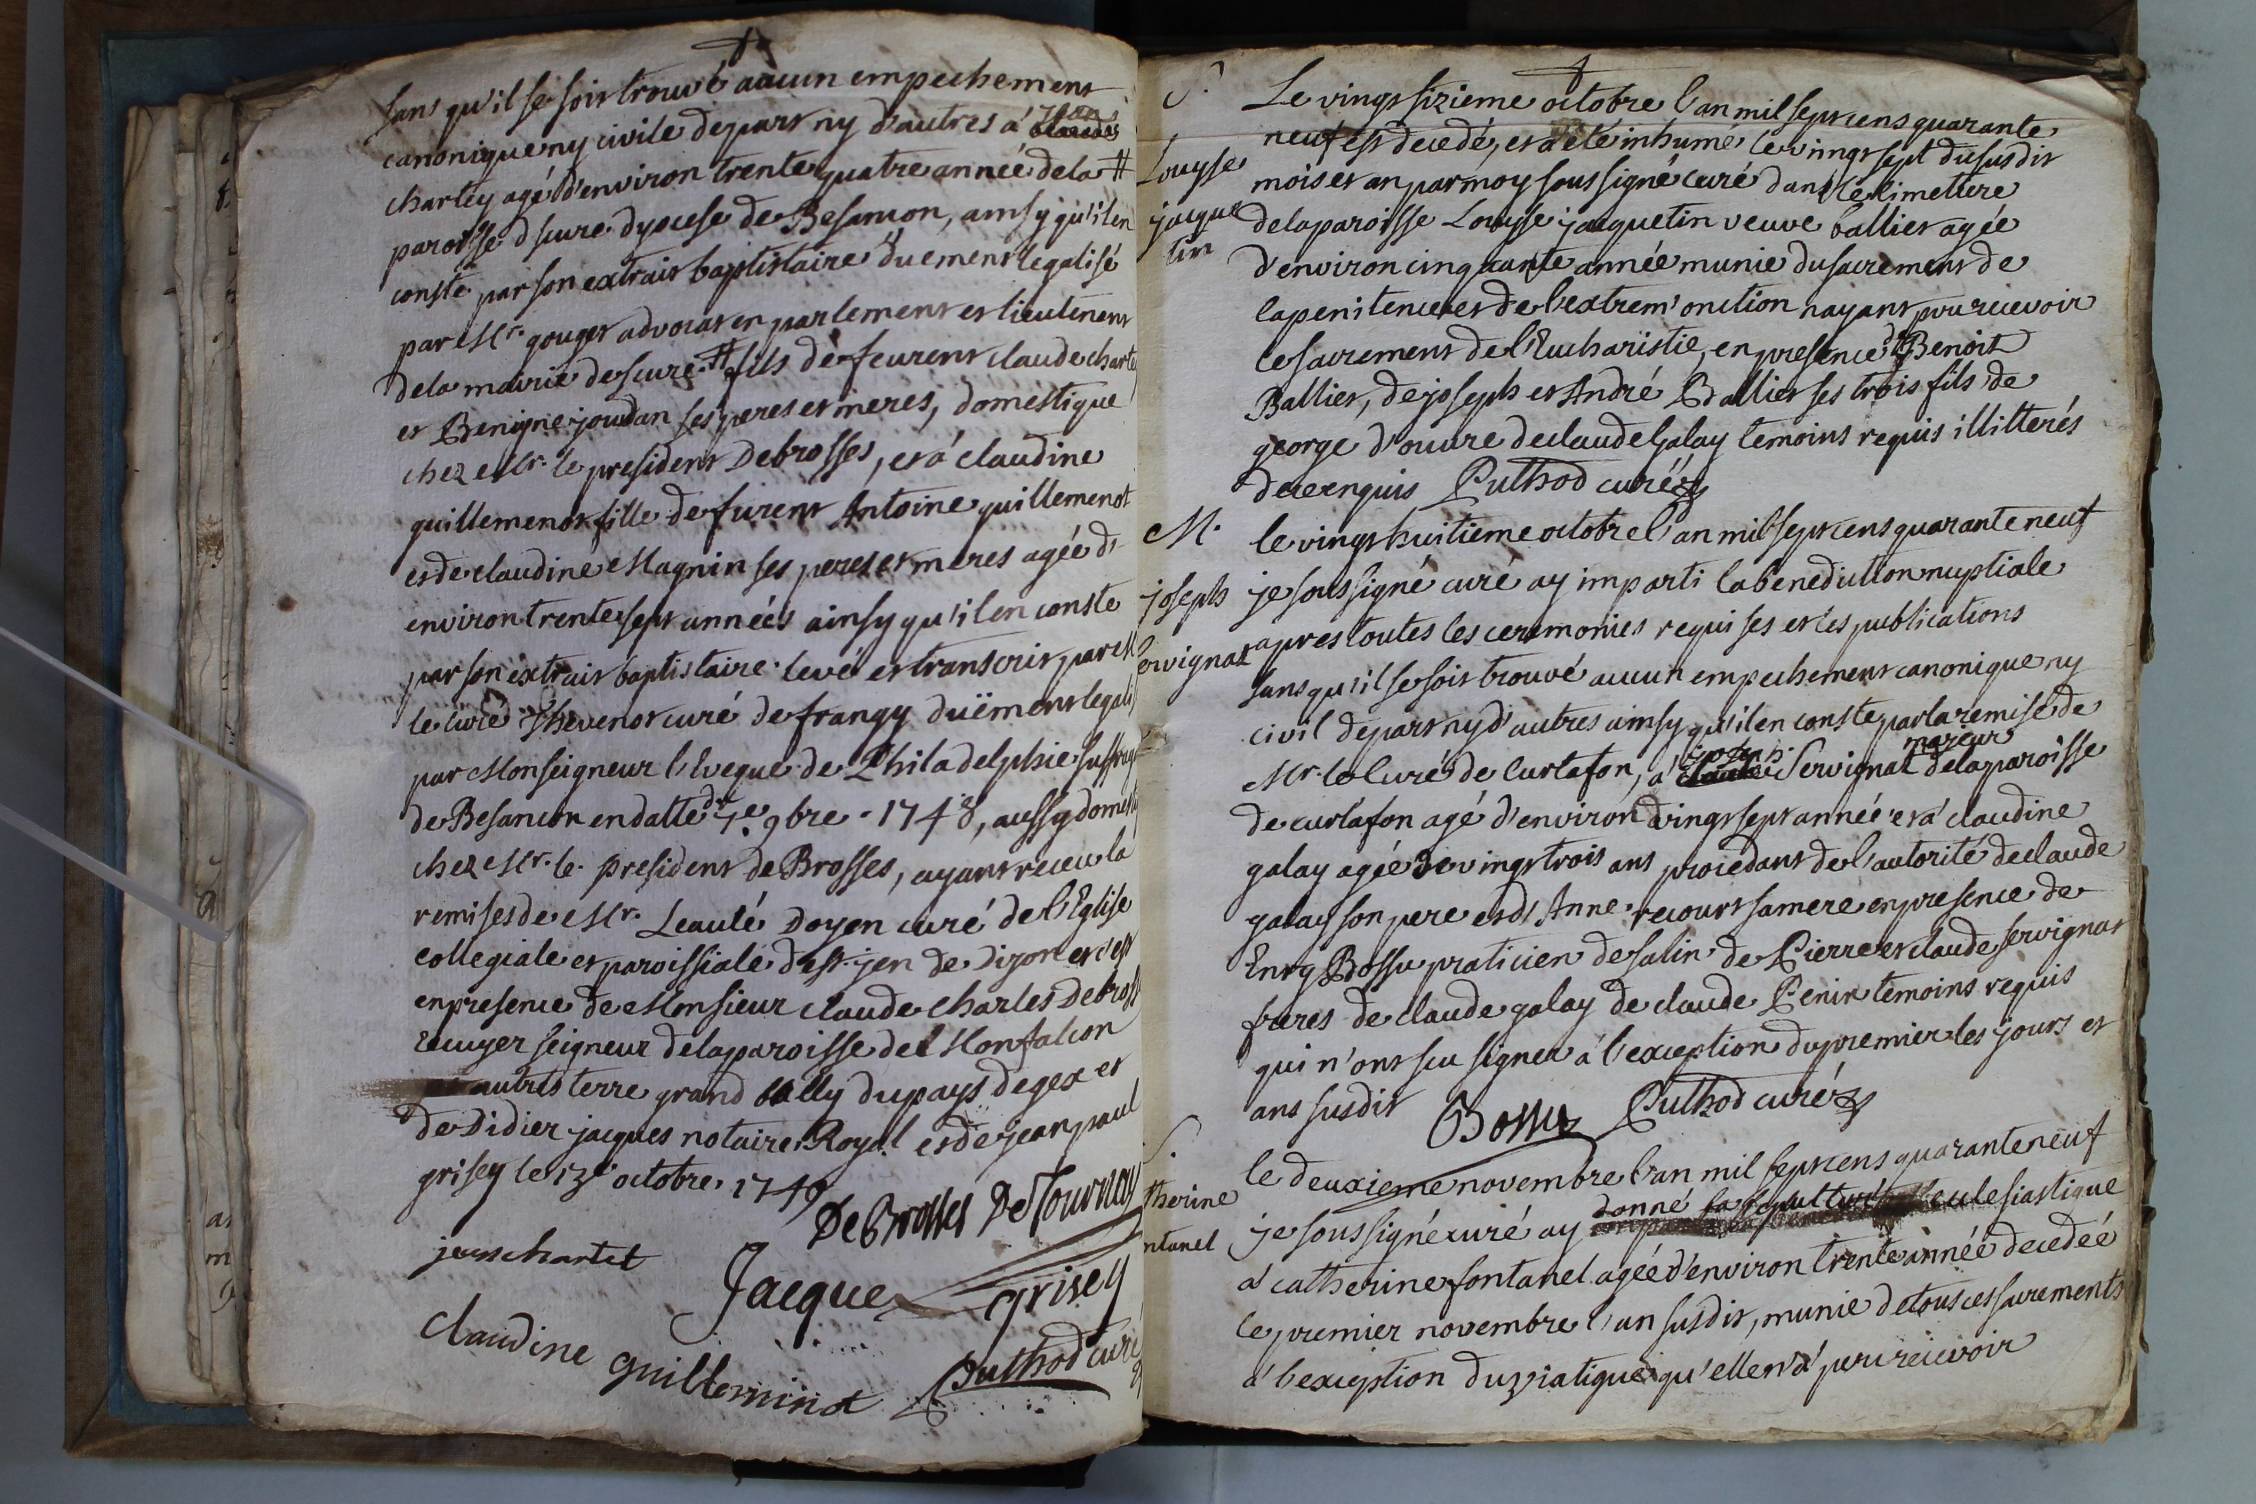 sans qu'il se soit trouvé aucun empechement
canonique ny civile depart ny d'autres á jean
chartey agé d'environ trente quatre année dela #
paroisse d scure dyocese de Besancon, ainsy qu'il en
conste par son extrait baptistaire duement legalisé
par Mr. gouget advocat en parlement et lieutenent
de la mairie de scure. # fils de feurent claude charte
et Benigne joudan ses peres et meres, domestique
chez Mr. le president Debrosses, et á claudine
guillemenot fille de furent Antoine guillemenot
et de claudine Magnin ses peres et meres agée d'
environ trente sept années ainsy qu'il en conste
par son extrait baptistaire levé et transcrit par M
le curé Thevenot curé de frangy duëment legali
par Monseigneur l'Eveque de Philadelphie suffrag
de Besancon en datte du 7e 9bre. 1748, aussy domest
chez Mr. le president de Brosses, ayant receu la
remises de Mr. Leauté Doyen curé de l'Eglise
collegiale et paroissiale d st. jen de Dijon et c'est
en presence de Monsieur claude charles Debross
Ecuyer seigneur dela paroisse de Monfalcon
autres terre grand bally du pays de gex et
de Didier jacques notaire Royal et de jean paul
grisey le 13e octobre 1749
DeBrosses DeTournay
jean chartet
Jacque grisey
claudine guilleminot
Puthod curé
S.
Le vingt sizieme octobre l'an mil sept cens quarante
neuf est decedé, et a eté inhumé le vingt sept du susdit
Louyse
mois et an par moy soussigné curé dans le cimettiere
jacque
tin
dela paroisse Louyse jacquetin veuve ballier agée
d'environ cinquante année munie du sacrement de
la penitence et de l'extrem'onction nayant pou recevoir
le sacrement de l'Eucharistie, en presence de Benoit
Ballier, de joseph et André Ballier ses trois fils de
george d'ouvre de claude Galay temoins requis illitterés
de ce enquis Puthod curé
M.
le vingt huitieme octobre l'an mil sept cens quarante neuf
joseph
je soussigné curé ay imparti la benediction nuptiale
servignat
apres toutes les ceremonies requises et les publications
sans qu'il se soit trouvé aucun empechement canonique ny
civil depart ny d'autres ainsy qu'il en conste par la remise de
Mr. le Curé de Curtafon, á joseph Servignat majeur dela paroisse
de curtafon agé d'environ vingt sept année et á claudine
galay agée de vingt trois ans procedant de l'autorité de claude
galay son pere et d' Anne recourt sa mere en presence de
Enry Bossu praticien de salin de Pierre et claude servignat
freres de claude galay de claude Penin temoins requis
qui n'ont scu signer á l'exception du premier les jours et
ans susdit Bossu Puthod curé
S.
le deuxieme novembre l'an mil sept cens quarante neuf
therine
je soussigné curé ay donné la sepulture eclesiastique
ntanel
a' catherine fontanel agée d'environ trente année decedeé
le premier novembre l'an susdit, munie de tous ces sacrements
á l'exception du viatique qu'elle n'á peu recevoir